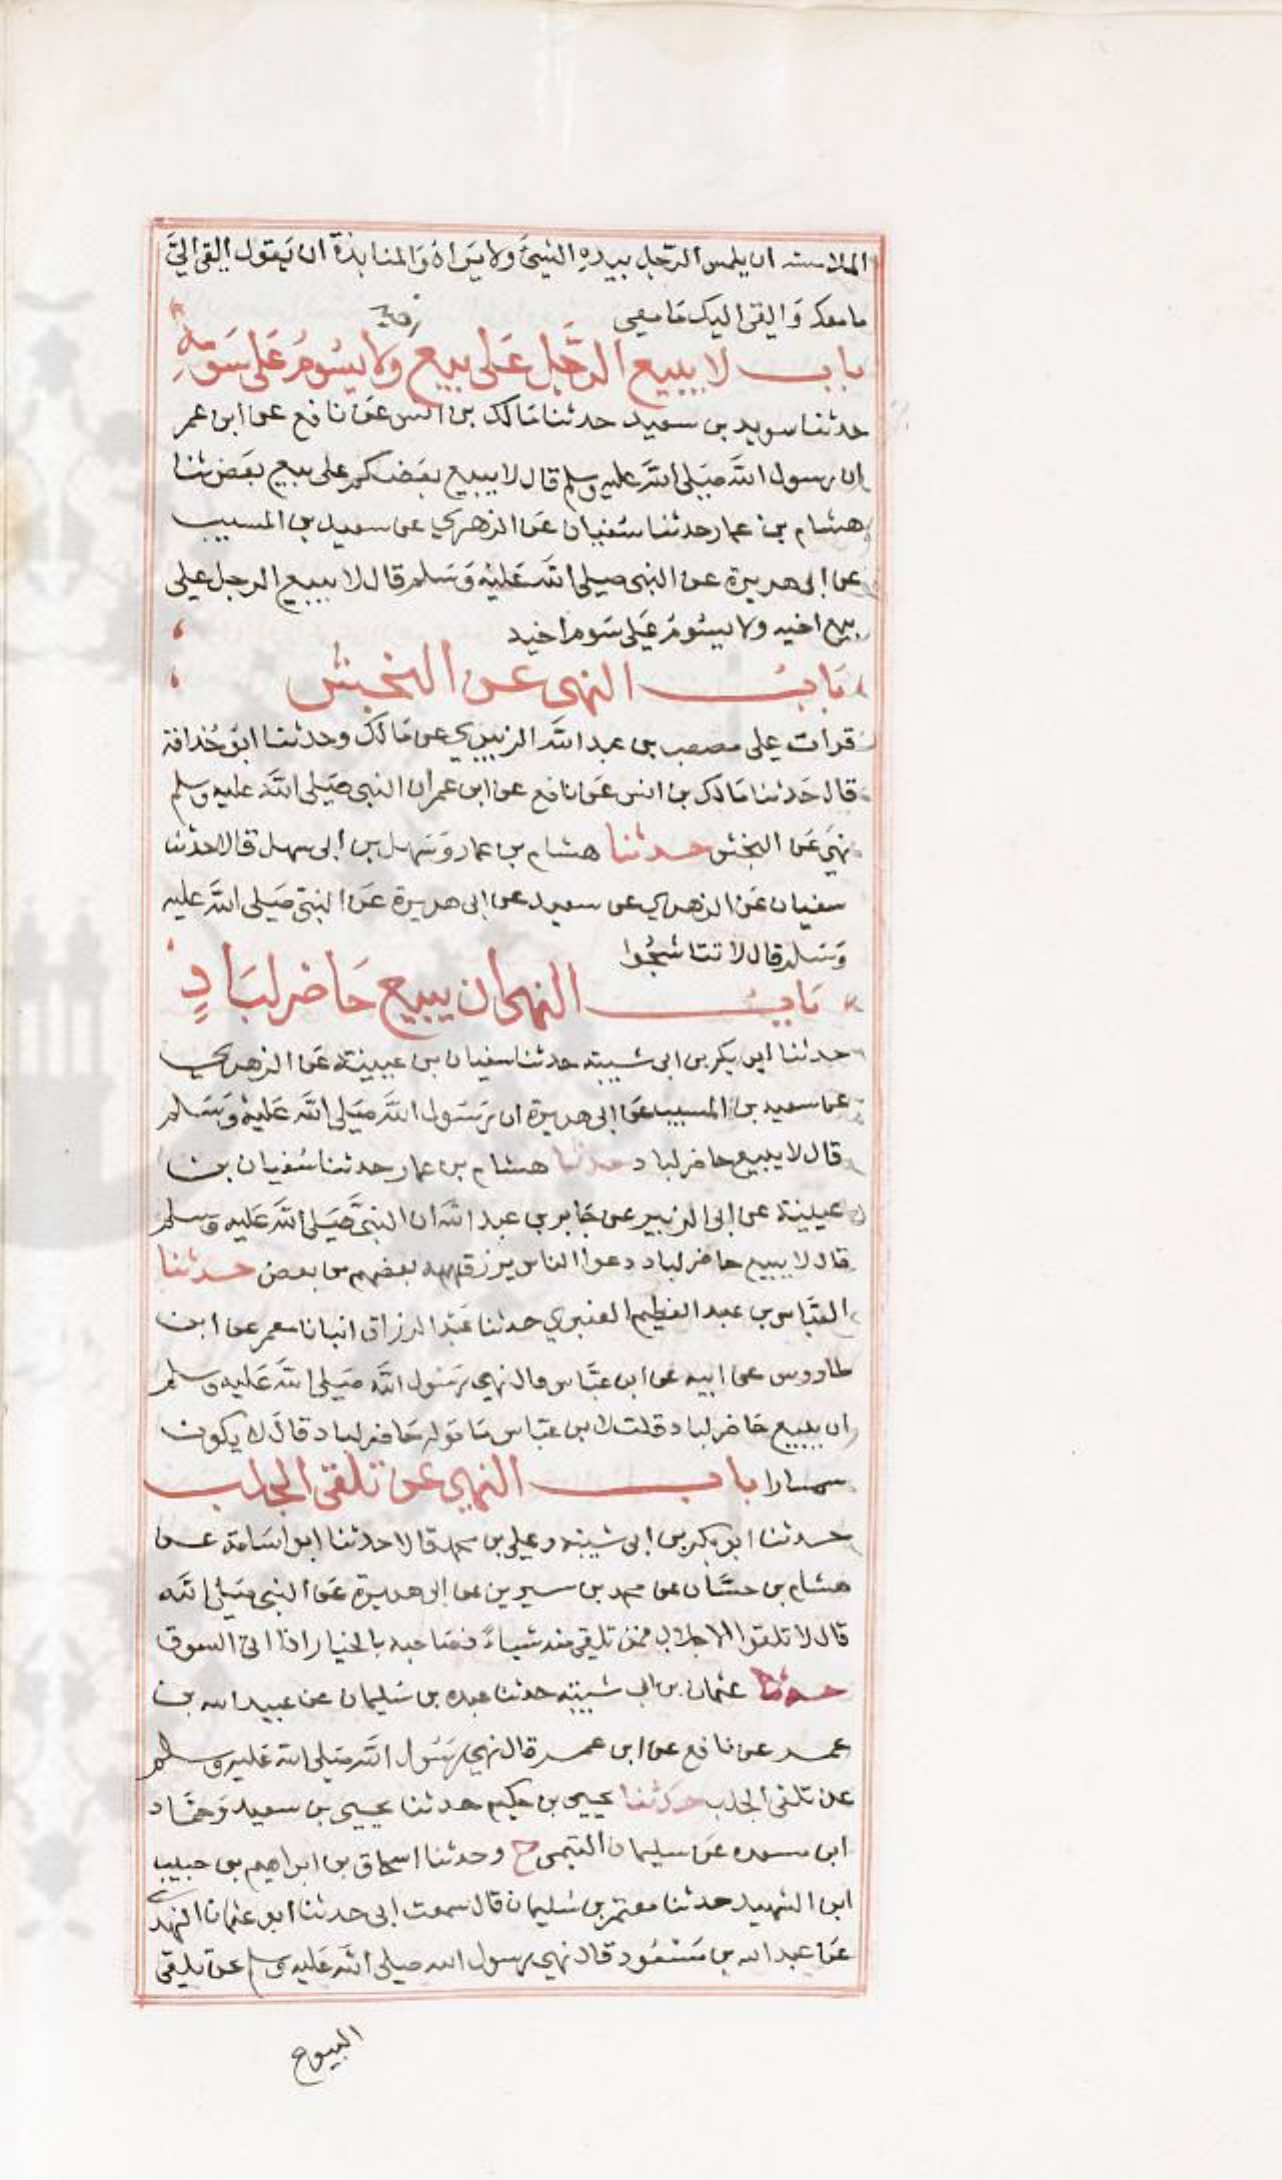 الملامسته ان يلمس الرّجل بيده الشيئ ولا يَراهُ وَالمنابذة ان يَقول القِ اليَّ
مامعك وَالقى اليك مَا معي
باب لا يبيع الرّجل عَلى بيع اخيه ولا يسُومُ عَلى سَومه
حدثنا سويد بن سعيد حدثنا مَالك بن انس عَن نافع عن ابن عمر
ان رسول الله صَلى الله عليه وسلم قال لا يبيع بعَضكم على بيع بعَض ثنا
هشام بن عمار حدثنا سُفيان عَن الزهري عن سعيد بن المسيب
عن ابى هريرة عن النبي صلى الله عَليْه وَسَلم قال لا يبيع الرجل على
بيع اخيه ولا يسُومُ عَلى سَوم اخيه
بَابُ النهي عن النجش
قرات على مصعب بن عبد الله الزبيري عن مَالك وحدثنا ابوُ حُذافة
قال حَدثنا مَالك بن انس عَن نافع عن ابن عمر ان النبي صَلى الله عليه وسلم
نهيَ عَن النجش حدثنا هشام بن عمار وَسَهل بن أبى سهل قالا حدثنا
سفيان عَن الزهري عن سعيد عن ابى هريرة عَن النبيّ صَلى اللهَ عليه
وَسَلم قال لا تناشجُوا
بَابُ النهى ان يبيع حَاضر لبَادٍ
حدثنا ابو بكر بن ابى شيبته حدثنا سفيان بن عيينة عَن الزهري
عن سعيد بن المسيب عَن ابى هريرة ان رَسَول اللهَ صَلى الله عَليْه وَسَلم
قال لا يبيع حاضر لباد حدثنا هشام بن عمار حدثنا سُفيان بن
عيينة عن ابى الزبير عن جَابر بن عبد الله ان النبيَّ صَلى الله عَليه وسلم
قال لا يبيع حاضر لباد دعوا الناس يرزق الله بعضهم من بعض حدثنا
العبَّاس بن عبد العظيم العنبري حدثنا عَبْد الرزاق انبانا معمر عن ابن
طاووس عن ابيه عن ابن عبَّاس قال نهي رَسُول الله صَلى الله عَليه وسلم
ان يبيع حَاضر لباد قلت لابن عبَاس مَا قوله حَاضر لباد قالَ لا يكون
سمسارا باب النهي عن تلقى الجلب
حدثنا ابو بكر بن ابى شيبته وعلي بن محمد قالا حدثنا ابو اسَامة عن
هشام بن حسَّان عن محمد بن سيرين عن ابى هريرة عَن النبي صَلى الله
قال لا تلقوا الاجلاب فمن تلقى منه شياءً فصَاحبه بالخيار اذا اتى السوق
حدثنا عثمان بن ابى شيبته حدثنا عبده بن سُليمان عن عبيد الله بن
عمر عن نافع عن ابن عمر قال نهي رَسَول الله صَلى الله عَليه وسلم
عن تلقى الجلب حدثنا يحيى بن حكيم حدثنا يحيى بن سعيد وَحمَّاد
ابن مسعده عَن سليمان التيمى ح وحدثنا اسحاق بن ابراهيم بن حبيب
ابن الشهيد حدثنا معتمر بن سُليمان قال سمعت ابى حدثنا ابو عثمان النهدي
عَن عبد الله بن مَسْعُود قال نهي رسول الله صلى الله عَليه وسلم عن تلقى
البيوع